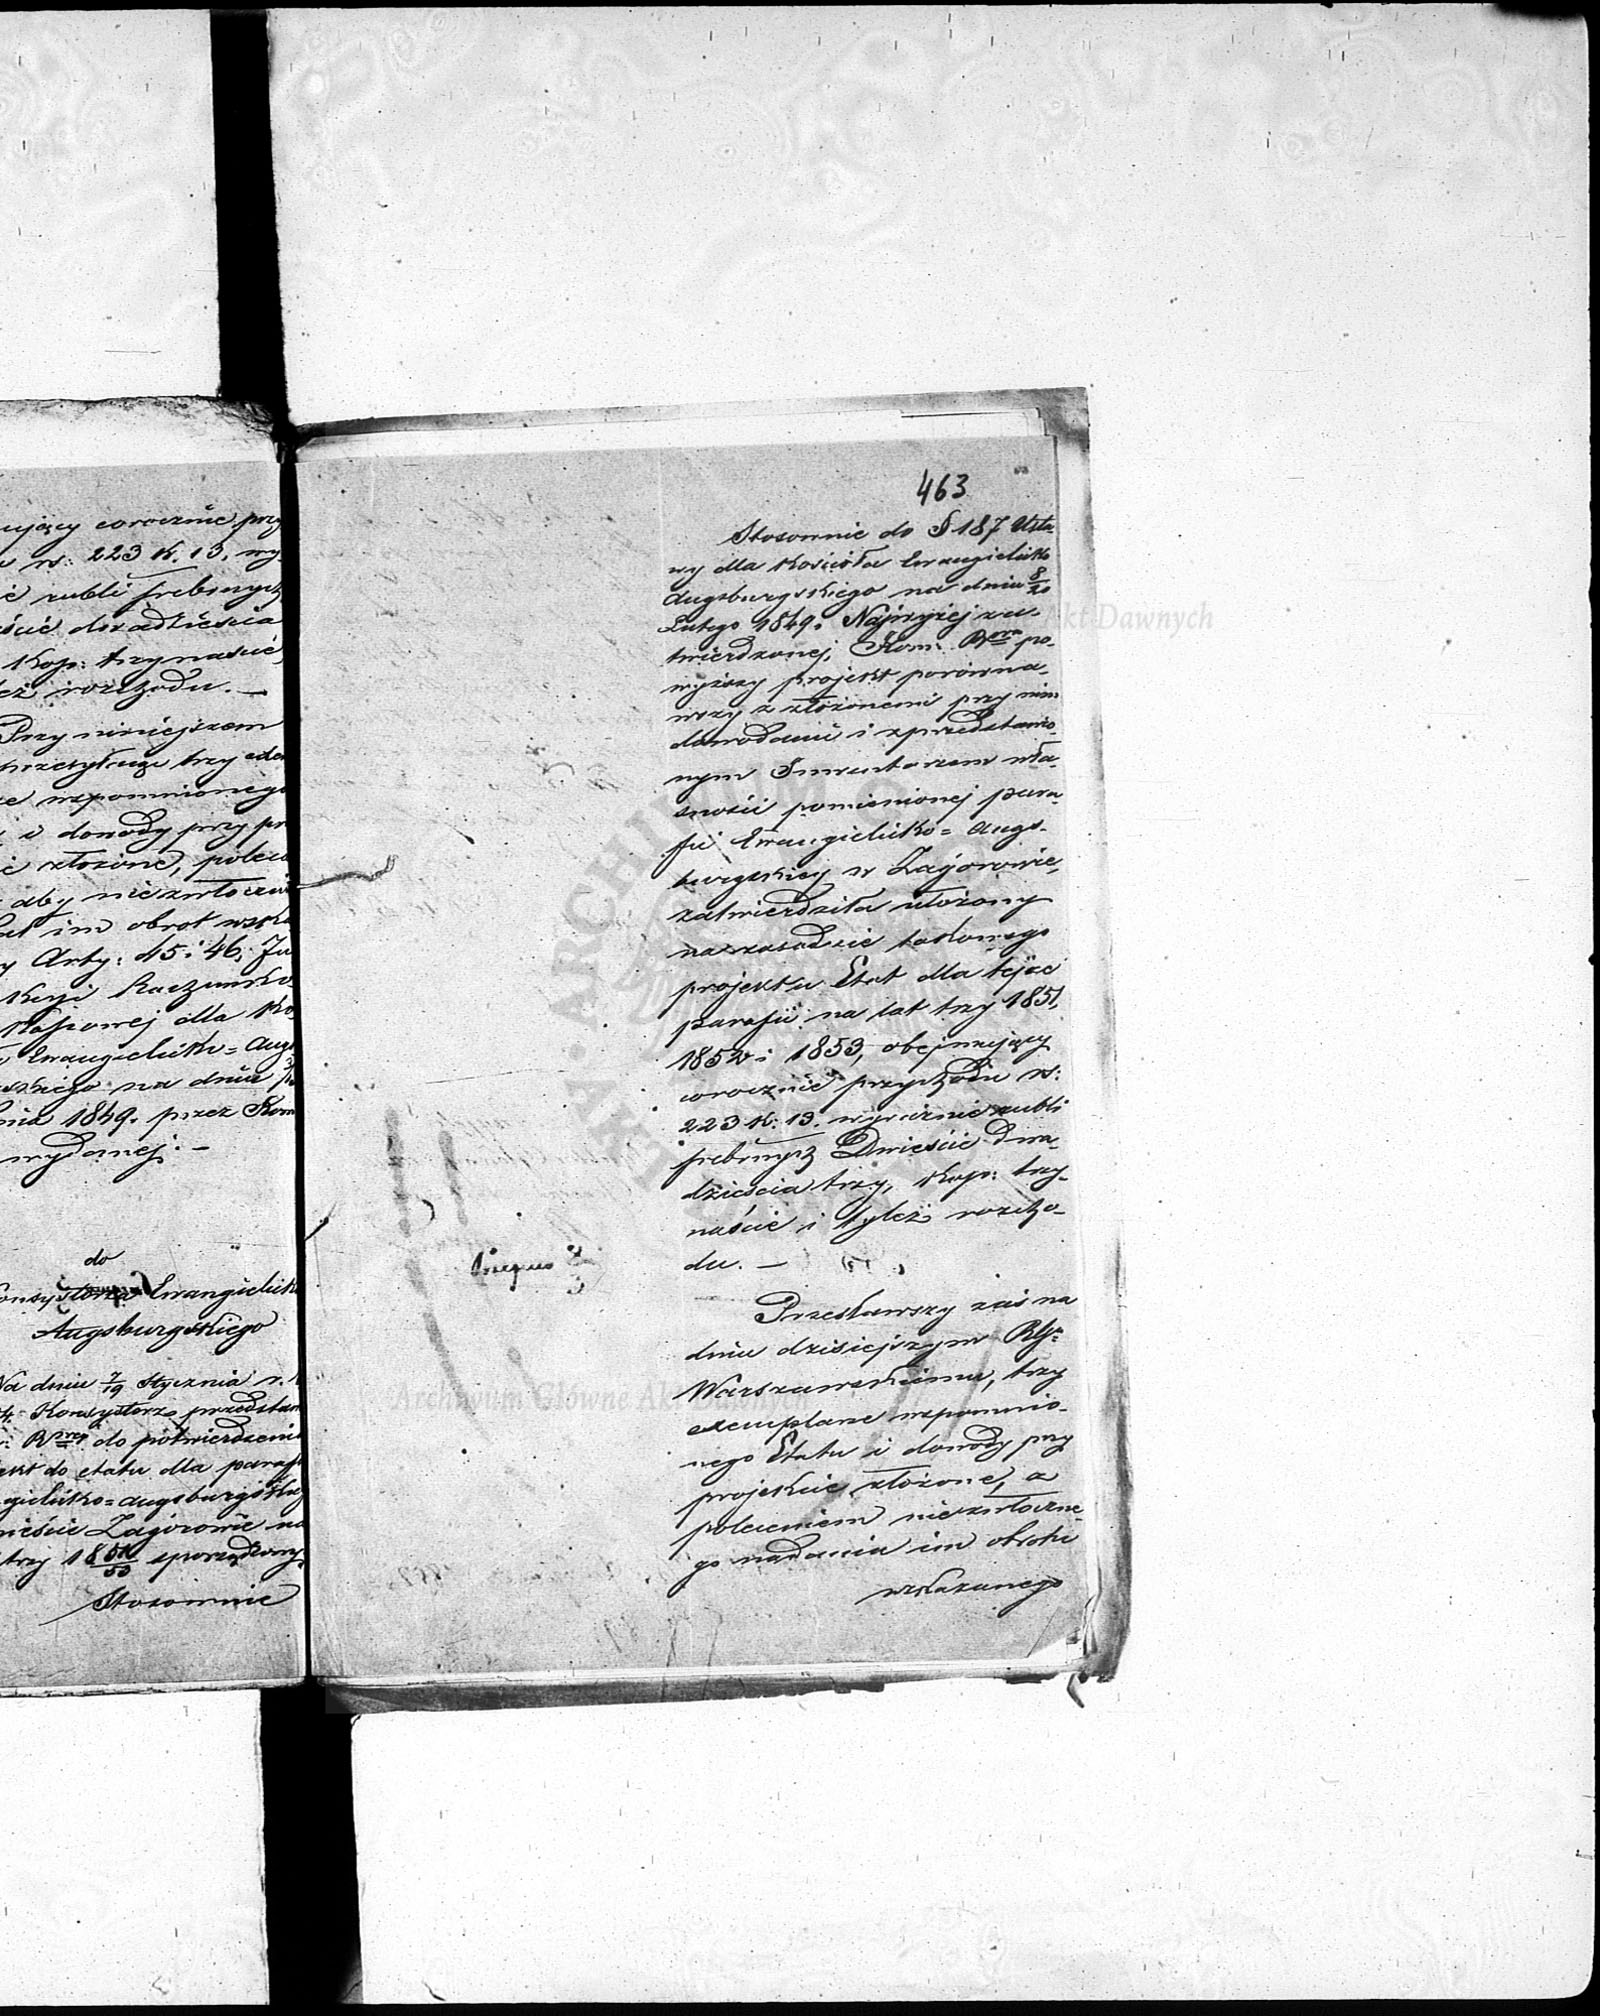 ujący corocznie przy
w rs: 223 K. 13. wy-
ie rubli srebrnych
eście dwadzieścia
Kop: trzynaście,
leż rozchodu. —
Przy niniejszem
przesyłając trzy
ze wspomnionego
i dowody przy pr
złożone, poleca
aby niezwłocznie
im obrot wska
y Arty: 45 i 46,
Kassowej dla Ko
Ewangielicko-Aug
skiego na dniu
nia 1849. przez Kom
wydanej. —
do
Konsystorza Ewangielick
Augsburgskiego
Na dniu 7/19 Stycznia r.
Konsystorz przedstaw
do potwierdzenia
ekt do etatu dla paraf
gielicko-augsburgskiej
mieście Zagórowie na
trzy 1851/53 sporządzony.
Stosownie
463
Stosownie do § 187 Usta-
wy dla Kościoła Ewangielicko
Augsburgskiego na dniu 8/20
Lutego 1849. Najwyżej za-
twierdzonej, Kom: Rzą po-
wyższy projekt porówna-
wszy z złożonemi przy nim
dowodami i z przedstawio-
nym Inwentarzem wła-
sności pomienionej para-
fii Ewangielicko-Augs-
burgskiej w Zagórowie,
zatwierdziła ułożony
na zasadzie takowego
projektu Etat dla tejże
parafii na lat trzy 1851,
1852 i 1853, obejmujący
corocznie przychodu rs:
223 K: 13. wyraźnie rubli
srebrnych Dwieście Dwa-
dzieścia trzy, Kop: trzy-
naście i tyleż rozcho-
du. —
Przesławszy zaś na
dniu dzisiejszym RG
Warszawskiemu, trzy
exemplarze wspomnio-
nego Etatu i dowody przy
projekcie złożone, z
poleceniem niezwłoczne-
go nadania im obrotu
wskazanego
Archiwum Główne Akt Dawnych